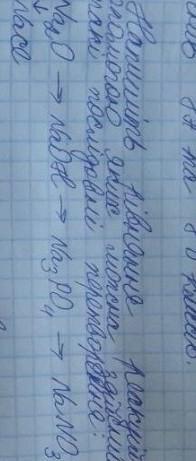 Напишіть рівняння реакцій
допомогою яких можна здійснити
такі послідовні перетворення:
Na₂O → NaOH → Na₃PO₄ → NaNO₃
↓
NaCl